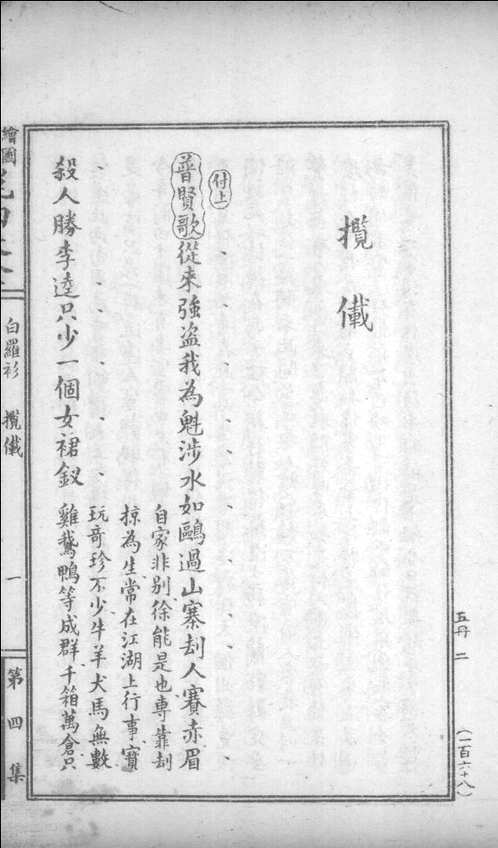 攬儎
付上
普賢歌從來強盗我為魁涉水如鷗過山寨刦人賽赤眉
殺人勝李逵只少一個女裙釵
自家非别徐能是也專靠刦
掠為生常在江湖上行事寳
玩奇珍不少牛羊犬馬無數
雞鵞鴨等成群千箱萬倉只
繪圖
白羅衫 攬儎
一
第四集
五丹 二
(一百六十八)